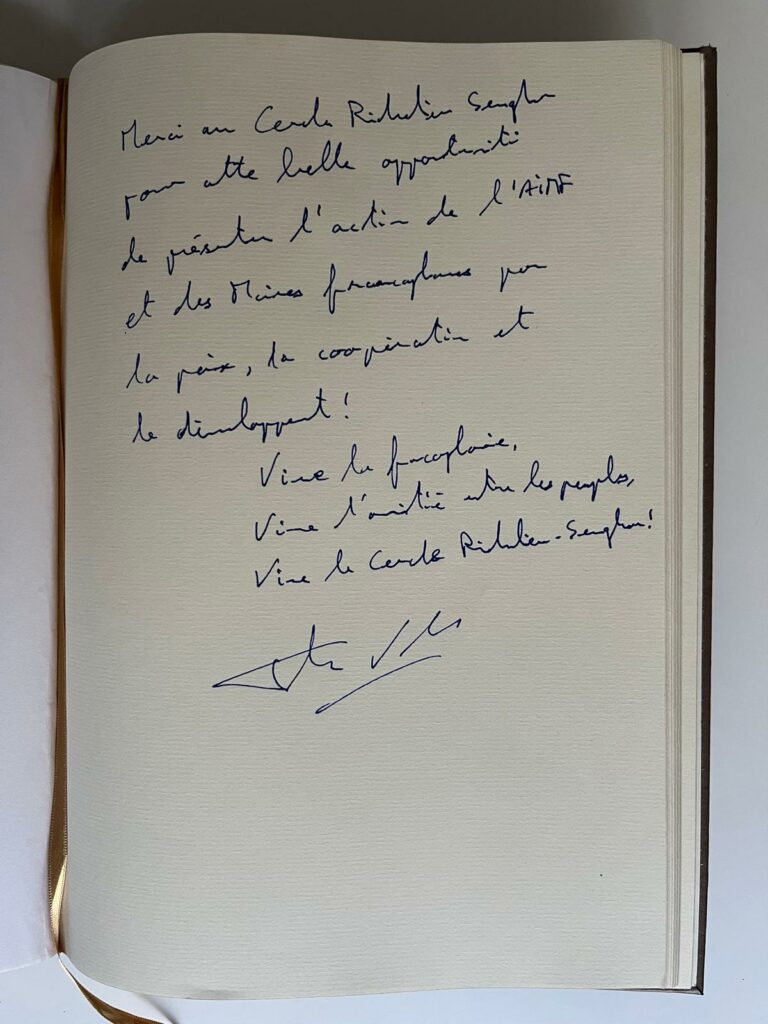 Merci au Cercle Richelieu Senghor
pour cette belle opportunité
de présenter l'action de l'AIMF
et des Maires francophones pour
la paix, la coopération et
le développement !
Vive la francophonie,
Vive l'amitié entre les peuples,
Vive le Cercle Richelieu-Senghor !